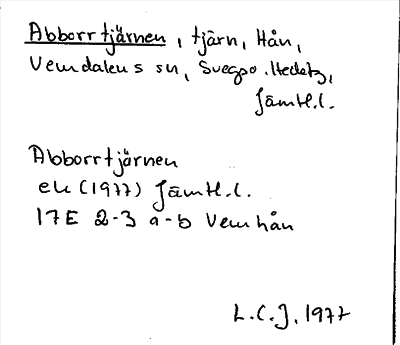 Abborrtjärnen, tjärn, Hån,
Vemdalens sn, Svegso. Hedetg,
Jämtl.l.
Abborrtjärnen
ek (1977) Jämtl.l.
17E 2-3 a-b Vemhån
L.C.J. 1977